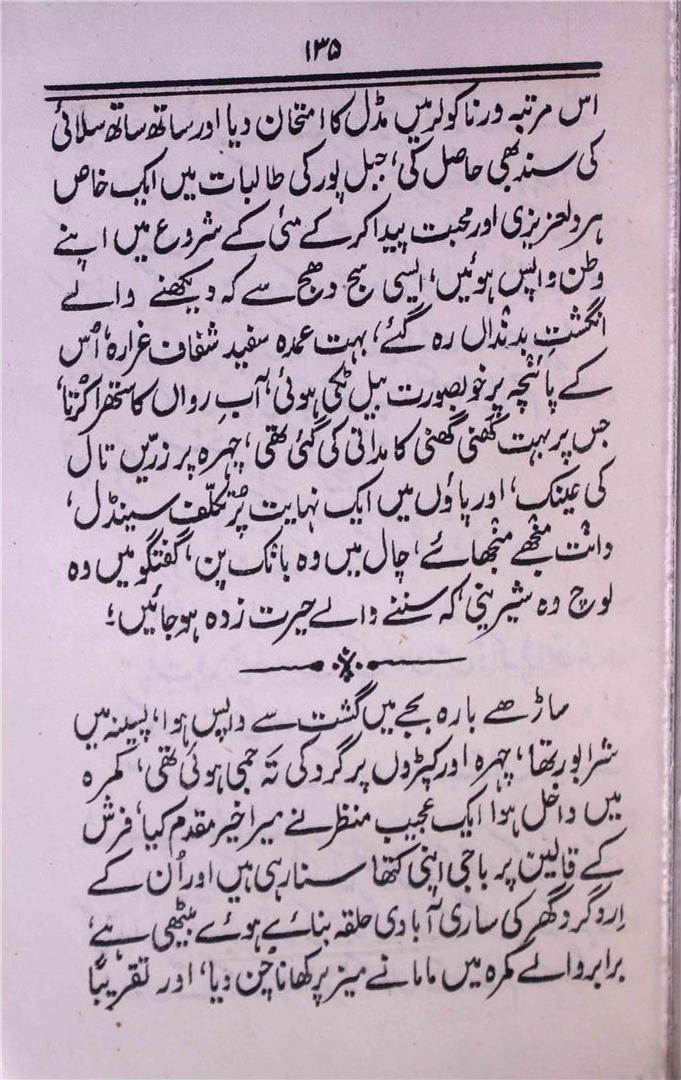 ۱۳۵
اس مرتبہ ورناکولر میں مڈل کا امتحان دیا اور ساتھ ساتھ سلائی
کی سند بھی حاصل کی، جبل پور کی طالبات میں ایک خاص
ہر دلعزیزی اور محبت پیدا کر کے مئی کے شروع میں اپنے
وطن واپس ہوئیں، ایسی سج دھج سے کہ دیکھنے والے
انگشتِ بدنداں رہ گئے، بہت عمدہ سفید شفاف غرارہ، اُس
کے پائنچہ پر خوبصورت بیل ٹکی ہوئی، آبِ رواں کا ستھرا کُرتا،
جس پر بہت گھنی گھنی کامدانی کی گئی تھی، چہرہ پر زرّیں تال
کی عینک، اور پاؤں میں ایک نہایت پُر تکلّف سینڈل،
دانت منجھے منجھائے، چال میں وہ بانک پن، گفتگو میں وہ
لوچ وہ شیرینی، کہ سننے والے حیرت زدہ ہو جائیں؛
ساڑھے بارہ بجے میں گشت سے واپس ہوا، پسینہ میں
شرابور تھا، چہرہ اور کپڑوں پر گرد کی تہ جمی ہوئی تھی، کمرہ
میں داخل ہوا ایک عجیب منظر نے میرا خیر مقدم کیا، فرش
کے قالین پر باجی اپنی کتھا سنا رہی ہیں اور اُن کے
اِرد گرد گھر کی ساری آبادی حلقہ بنائے ہوئے بیٹھی ہے،
برابر والے کمرہ میں ماما نے میز پر کھانا چُن دیا، اور تقریباً